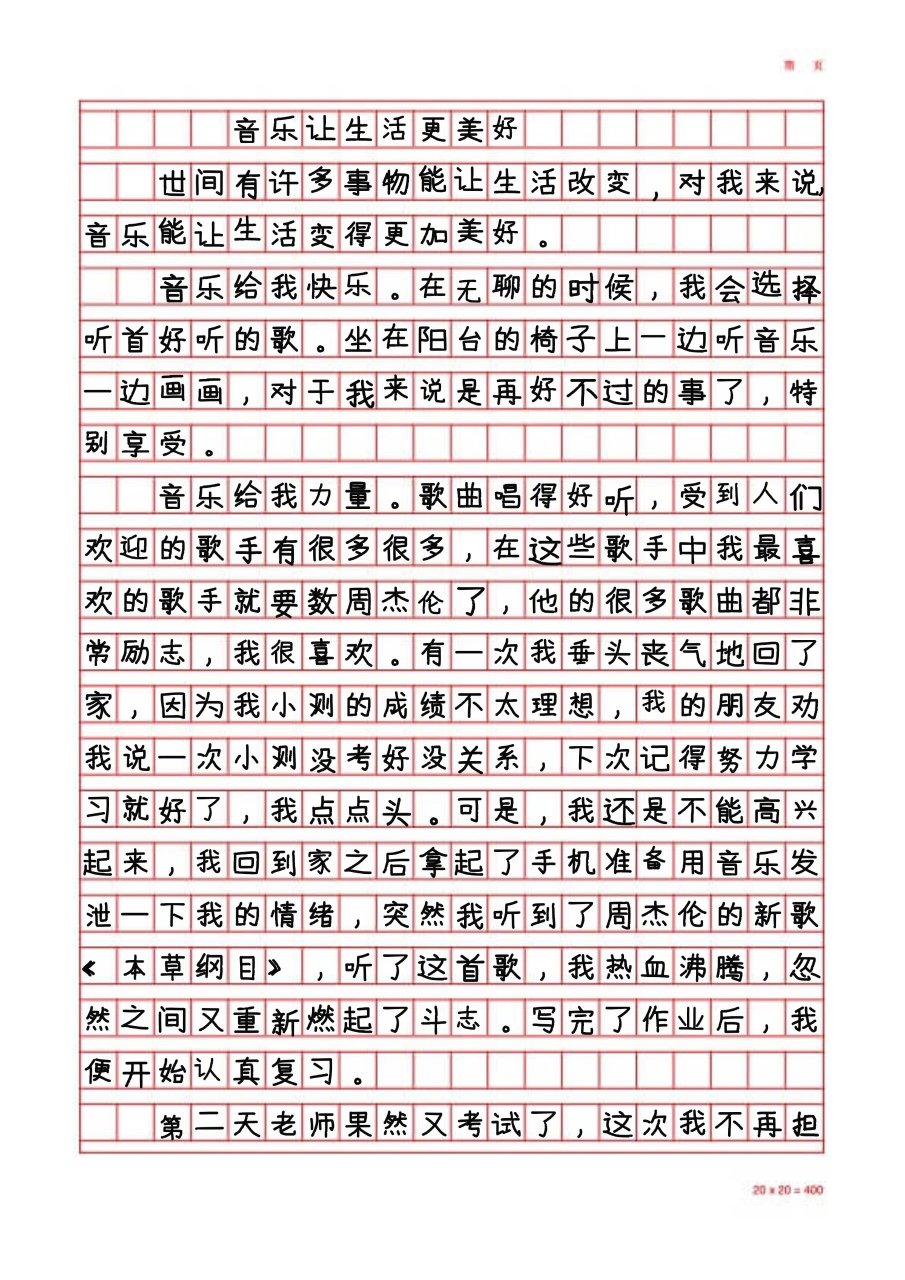 第 页
音乐让生活更美好
世间有许多事物能让生活改变，对我来说，
音乐能让生活变得更加美好。
音乐给我快乐。在无聊的时候，我会选择
听首好听的歌。坐在阳台的椅子上一边听音乐
一边画画，对于我来说是再好不过的事了，特
别享受。
音乐给我力量。歌曲唱得好听，受到人们
欢迎的歌手有很多很多，在这些歌手中我最喜
欢的歌手就要数周杰伦了，他的很多歌曲都非
常励志，我很喜欢。有一次我垂头丧气地回了
家，因为我小测的成绩不太理想，我的朋友劝
我说一次小测没考好没关系，下次记得努力学
习就好了，我点点头。可是，我还是不能高兴
起来，我回到家之后拿起了手机准备用音乐发
泄一下我的情绪，突然我听到了周杰伦的新歌
《本草纲目》，听了这首歌，我热血沸腾，忽
然之间又重新燃起了斗志。写完了作业后，我
便开始认真复习。
第二天老师果然又考试了，这次我不再担
20 x 20 = 400